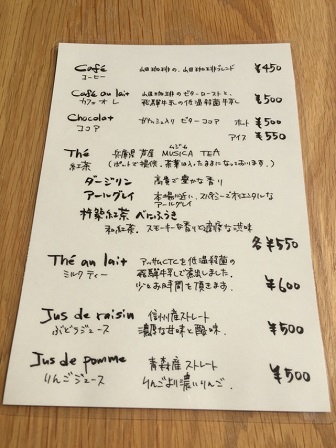 Café 山田珈琲の、山田珈琲ブレンド ¥450
コーヒー
Café au lait 山田珈琲のビターローストと、
カフェオレ 飛騨牛乳の低温殺菌牛乳 ¥500
Chocolat ガナッシュ入り ビターココア ホット ¥500
ココア アイス ¥550
ムジカ
Thé 兵庫県 芦屋 MUSICA TEA
紅茶 (ポットで提供、茶葉は入ったままになっております。)
ダージリン 高貴で豊かな香り
アールグレイ 本場に近い、スモーキーでオリエンタルな
アールグレイ
杵築紅茶 べにふうき
和紅茶、スモーキーな香りと適度な渋味
各¥550
Thé au lait アッサムCTCを低温殺菌の
ミルクティー 飛騨牛乳で煮出しました。
少しお時間を頂きます。 ¥600
Jus de raisin 信州産ストレート
ぶどうジュース 濃厚な甘味と酸味. ¥500
Jus de pomme 青森産ストレート
りんごジュース りんごより濃いりんご。 ¥500